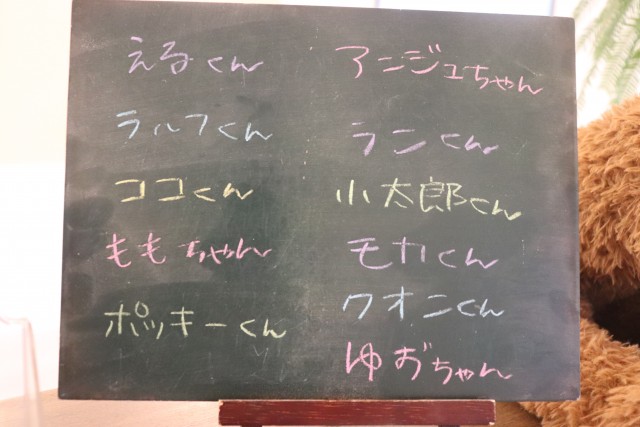 えるくん
ラルフくん
ココくん
ももちゃん
ポッキーくん
アンジュちゃん
ランくん
小太郎くん
モカくん
クオンくん
ゆおちゃん